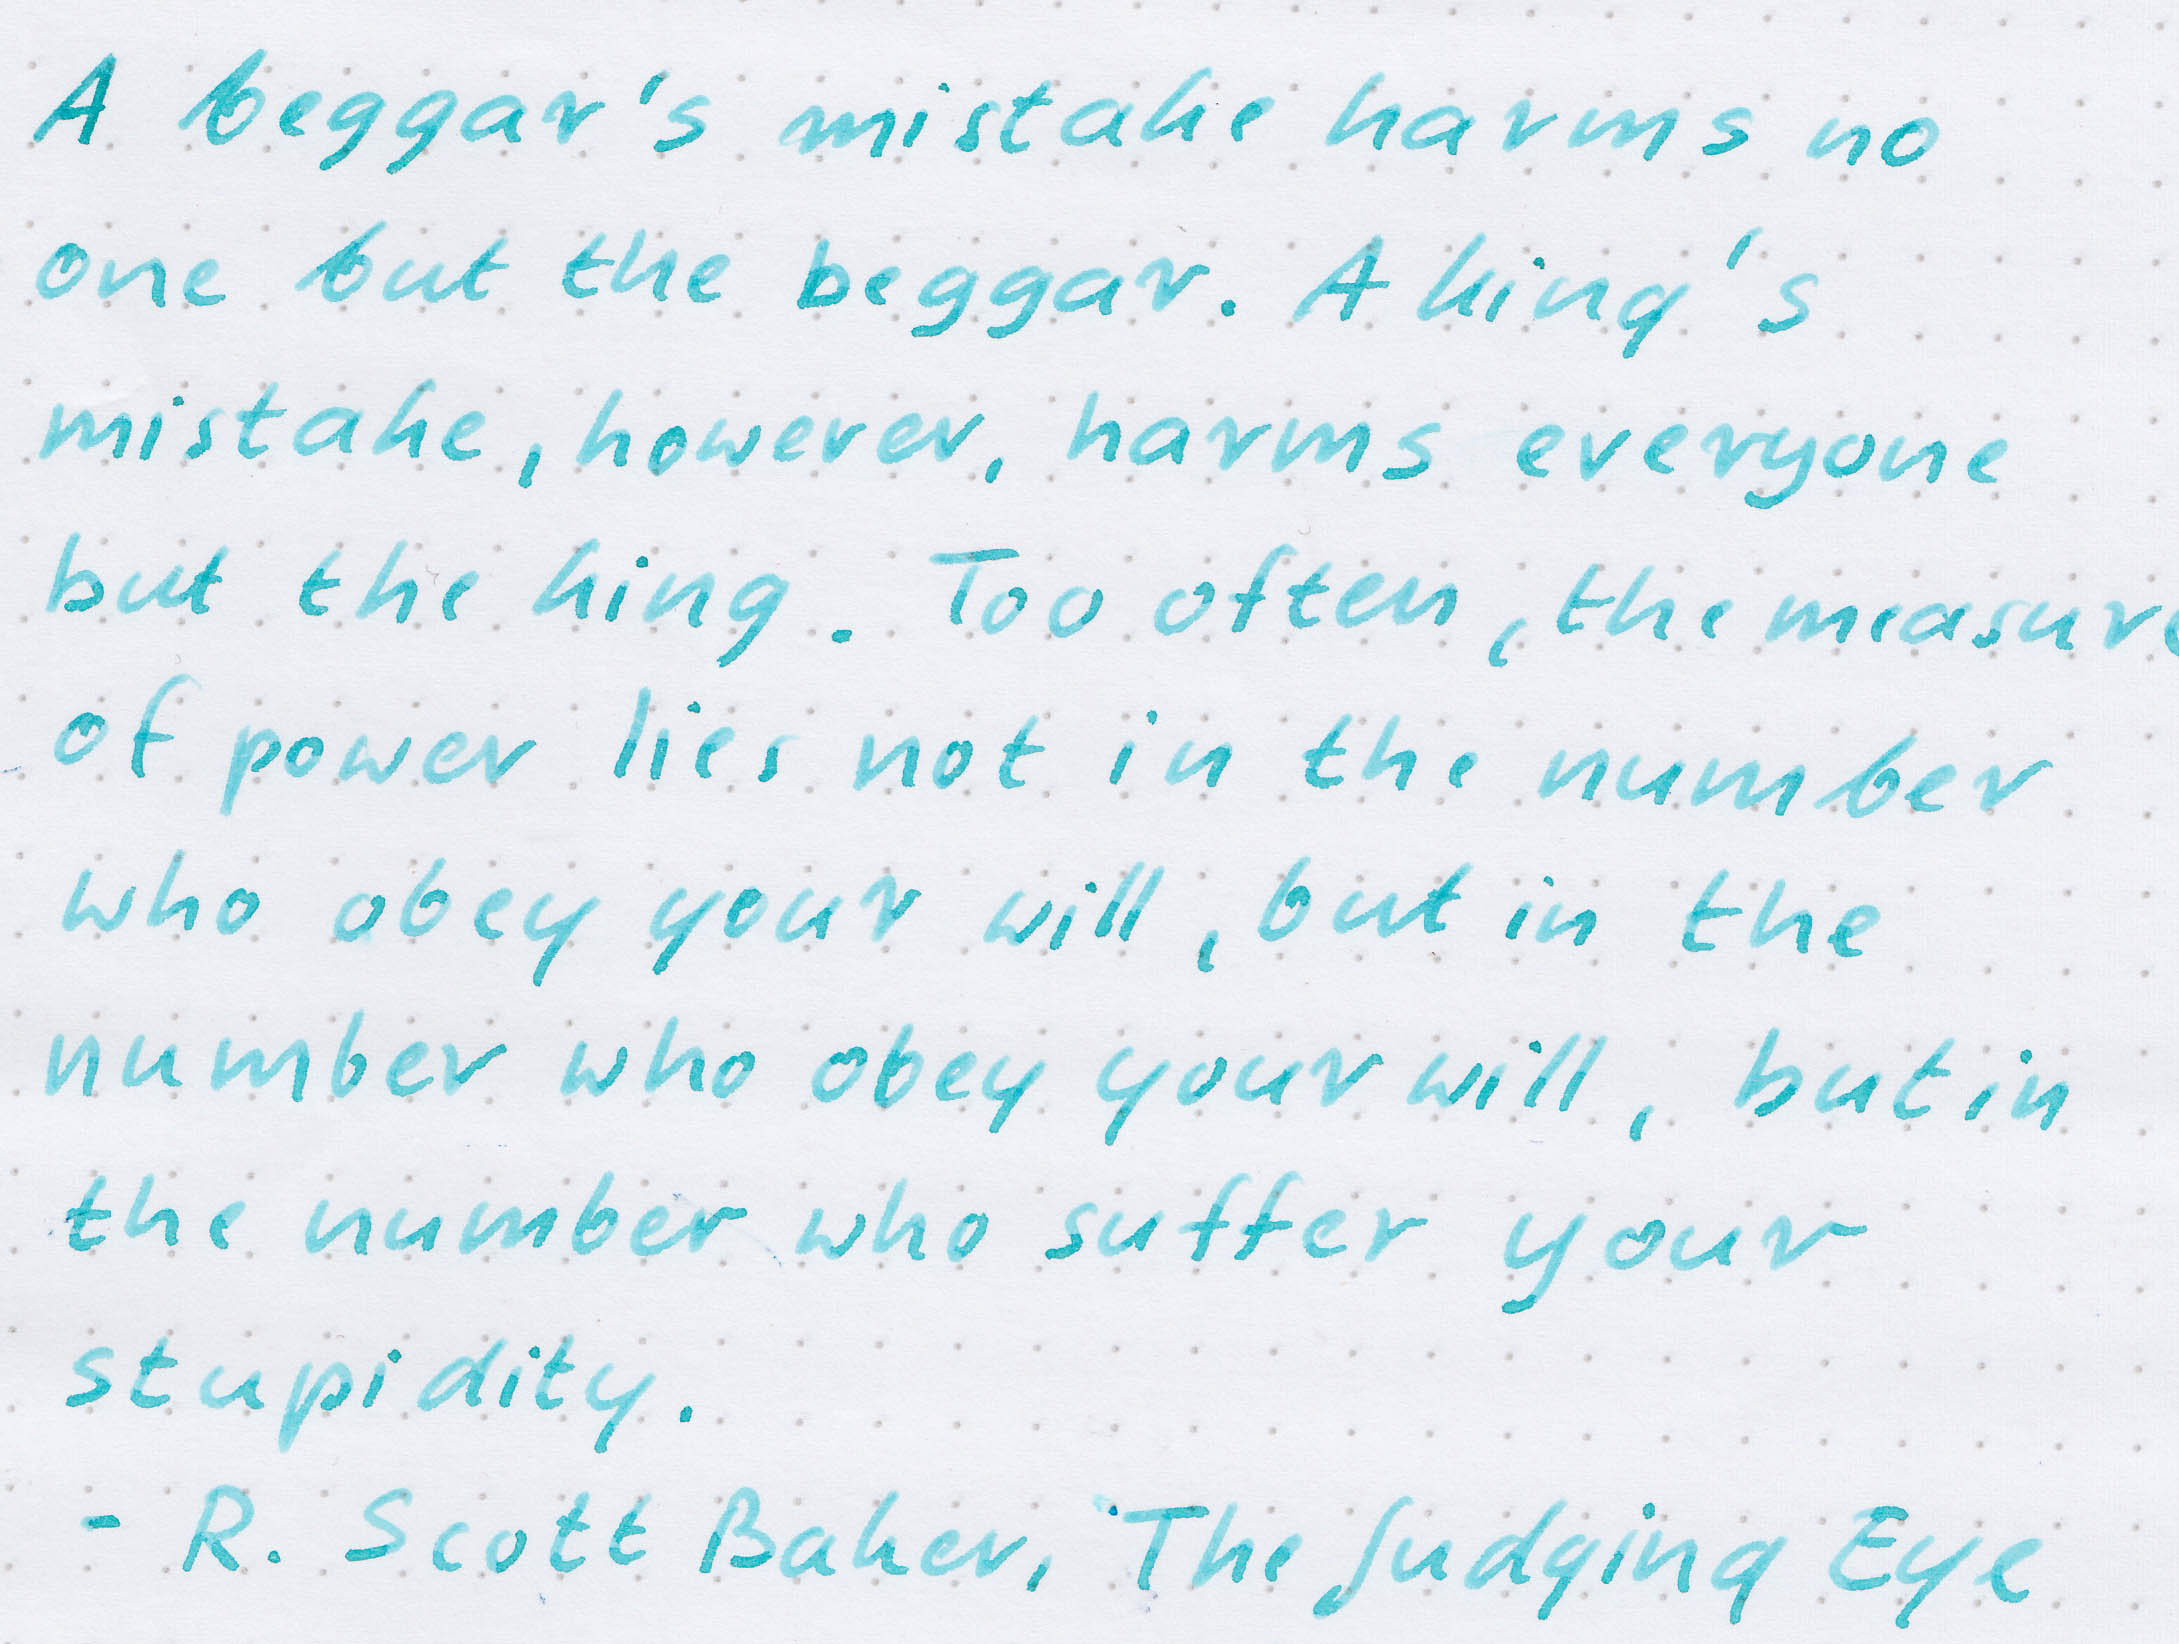 A beggar's mistake harms no
one but the beggar. A king's
mistake, however, harms everyone
but the king. Too often, the measure
of power lies not in the number
who obey your will, but in the
number who obey your will, but in
the number who suffer your
stupidity.
- R. Scott Baker, The Judging Eye